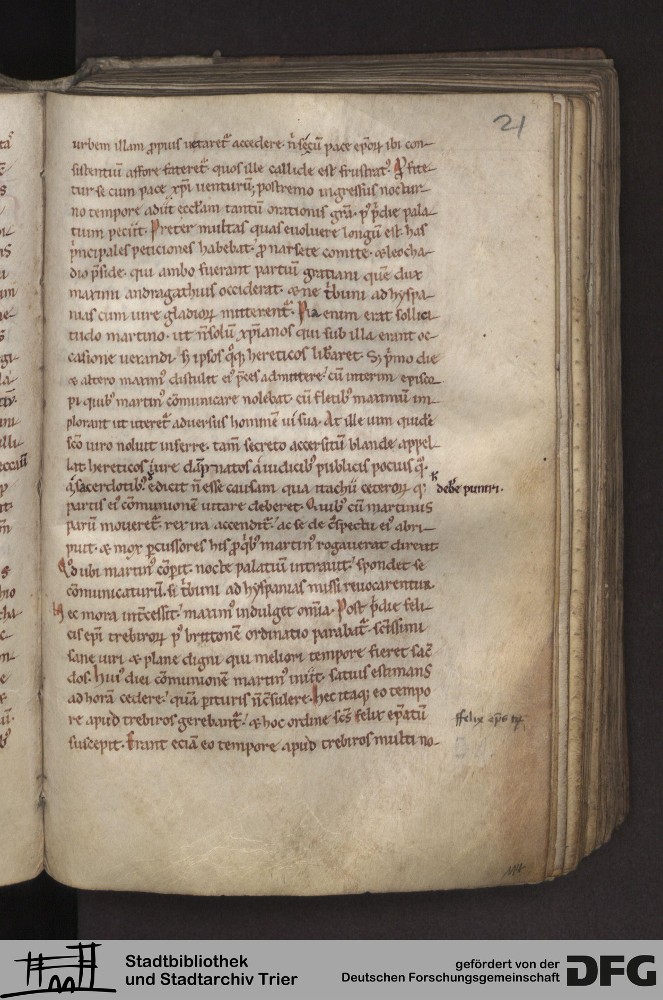 21
urbem illam ꝓpius uetaret᷑ accedere· n̄ se cū pace ep̄oꝝ ibi con-
sistentiū affore fateret᷑· quos ille callide est frustratꝰ·
tur se cum pace xp̄i uenturū; postremo ingressus noctur-
no tempore adiit eccl̄am tantū orationis gr̄a· pꝰ p̄die pala-
tium peciit· Preter multas quas euoluere longū est has
p̄ncipales peticiones habebat· ꝓ narsete comite· ⁊ leocha-
dio p̄side· qui ambo fuerant partiū gratiani quē dux
maximi andragathius occiderat· ⁊ ne t̄buni ad hyspa-
nias cum iure gladioꝝ mitterent᷑· Pia enim erat sollici-
tudo martino· ut n̄ solū xp̄ianos qui sub illa erant oc-
casione uexandi· sꝫ ipsos q̄q; hereticos lib̄aret· Sꝫ p̄mo die
⁊ altero maximꝰ distulit eiꝰ p̄ces admittere· cū interim episco-
pi quibꝰ martinꝰ cōmunicare nolebat· cū fletibꝰ maximū im-
plorant ut uteret᷑ aduersus hominē ui sua· At ille uim quidē
sc̄o uiro noluit inferre· tam̄ secreto accersitū blande appel-
lat hereticos iure dāpnatos a iudicibꝰ publicis pocius q̄·
a sacerdotibꝰ· edicit n̄ esse causam qua itachii ceteroꝝ q; debēre puniri·
partis eiꝰ cōmunionē uitare deberet· Quibꝰ cū martinus
parū moueret᷑· rex ira accendit᷑· ac se de cōspectu eiꝰ abri-
puit· ⁊ mox ꝑcussores his ꝓ q̄bꝰ martinꝰ rogauerat direxit·
Qd̄ ubi martinꝰ cōperit· nocte palatiū intrauit· spondet se
cōmunicaturū· si t̄buni ad hyspanias missi reuocarentur·
Nec mora int̄cessit· maximꝰ indulget om̄ia· Post p̄die feli-
cis ep̄i trebiroꝝ pꝰ brittonē ordinatio parabat᷑· sc̄issimi
sane uiri ⁊ plane digni qui meliori tempore fieret sac̄-
dos· Huiꝰ diei cōmunionē martinꝰ iniit· satius estimans
ad horā cedere· quā ꝑituris n̄ cōsulere· Hec itaq; eo tempo-
re apud trebiros gerebant᷑· ⁊ hoc ordine sc̄s felix ep̄atū
ffelix ep̄s
suscepit· Erant eciā eo tempore apud trebiros multi no-
Stadtbibliothek
und Stadtarchiv Trier
gefördert von der
Deutschen Forschungsgemeinschaft
DFG